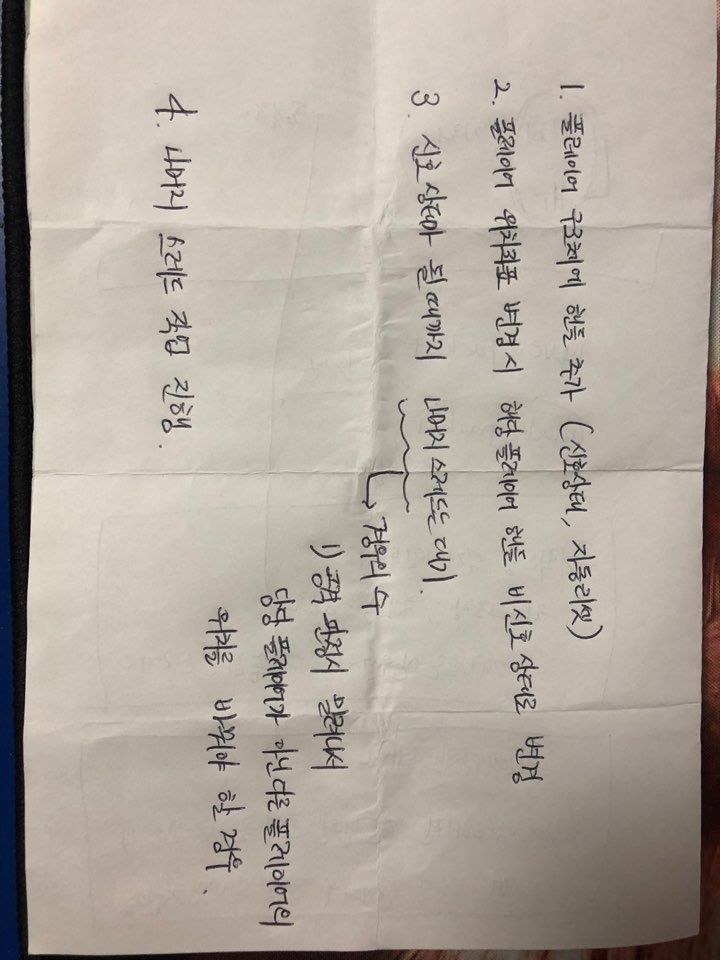 1. 플레이어 구조체에 핸들 추가 (신호상태, 자동리셋)
2. 플레이어 위치좌표 변경시 해당 플레이어 핸들 비신호 상태로 변경
3. 신호 상태가 될 때까지 나머지 스레드는 대기.
경우의 수
1) 공격 판정시 밀려나서
당당 플레이어가 아닌 다른 플레이어의
위치를 바꿔야 할 경우.
4. 나머지 스레드 작업 진행.